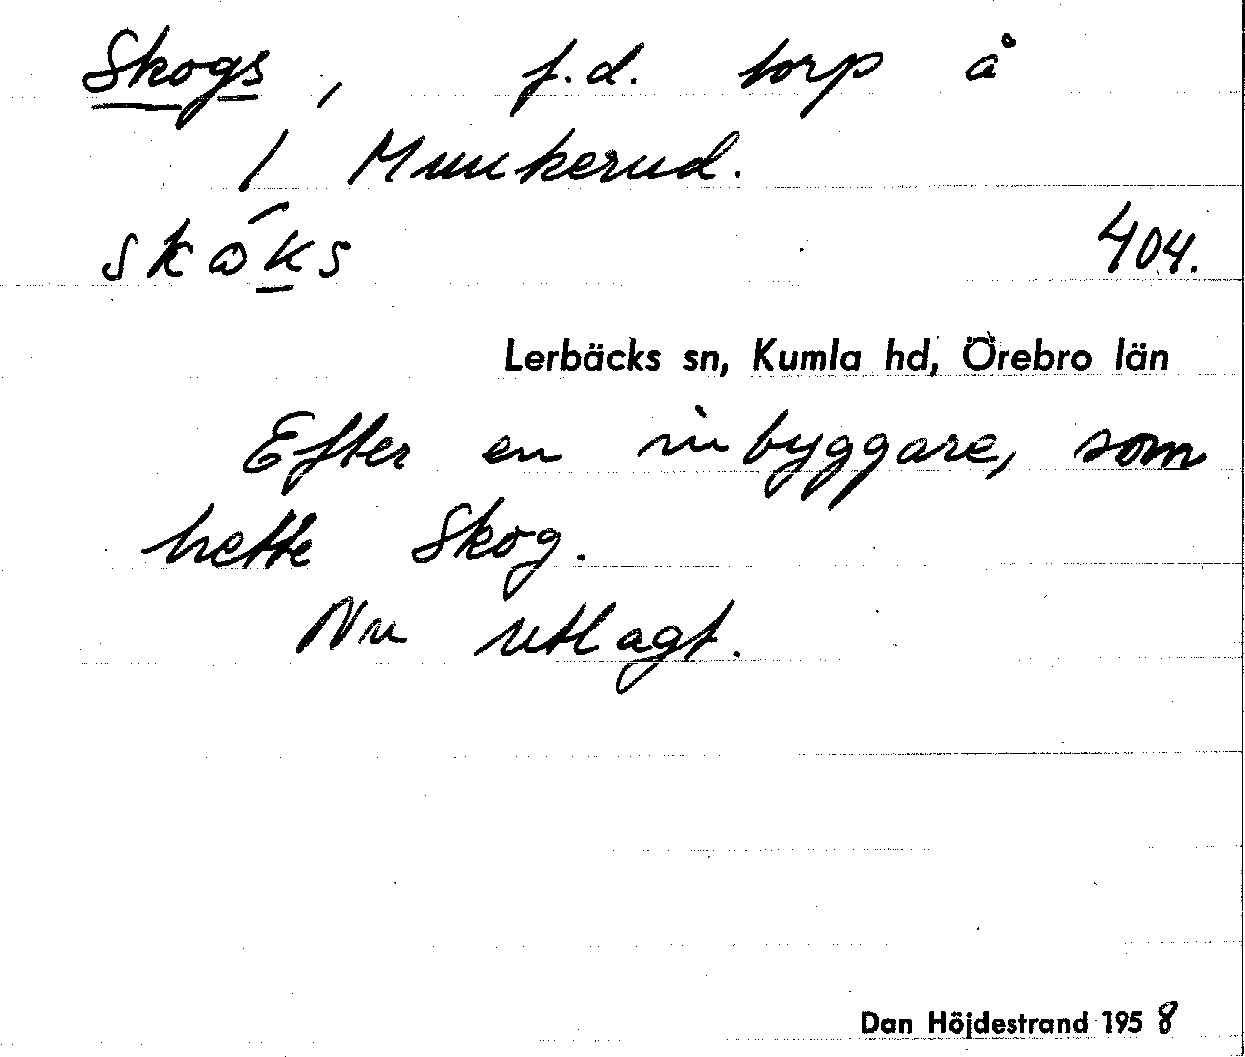 Skogs, f.d. torp å
/ Munkerud.
skóks 404.
Lerbäcks sn, Kumla hd, Örebro län
Efter en inbyggare, som
hette Skog.
Nu utlagt.
Dan Höjdestrand 1958